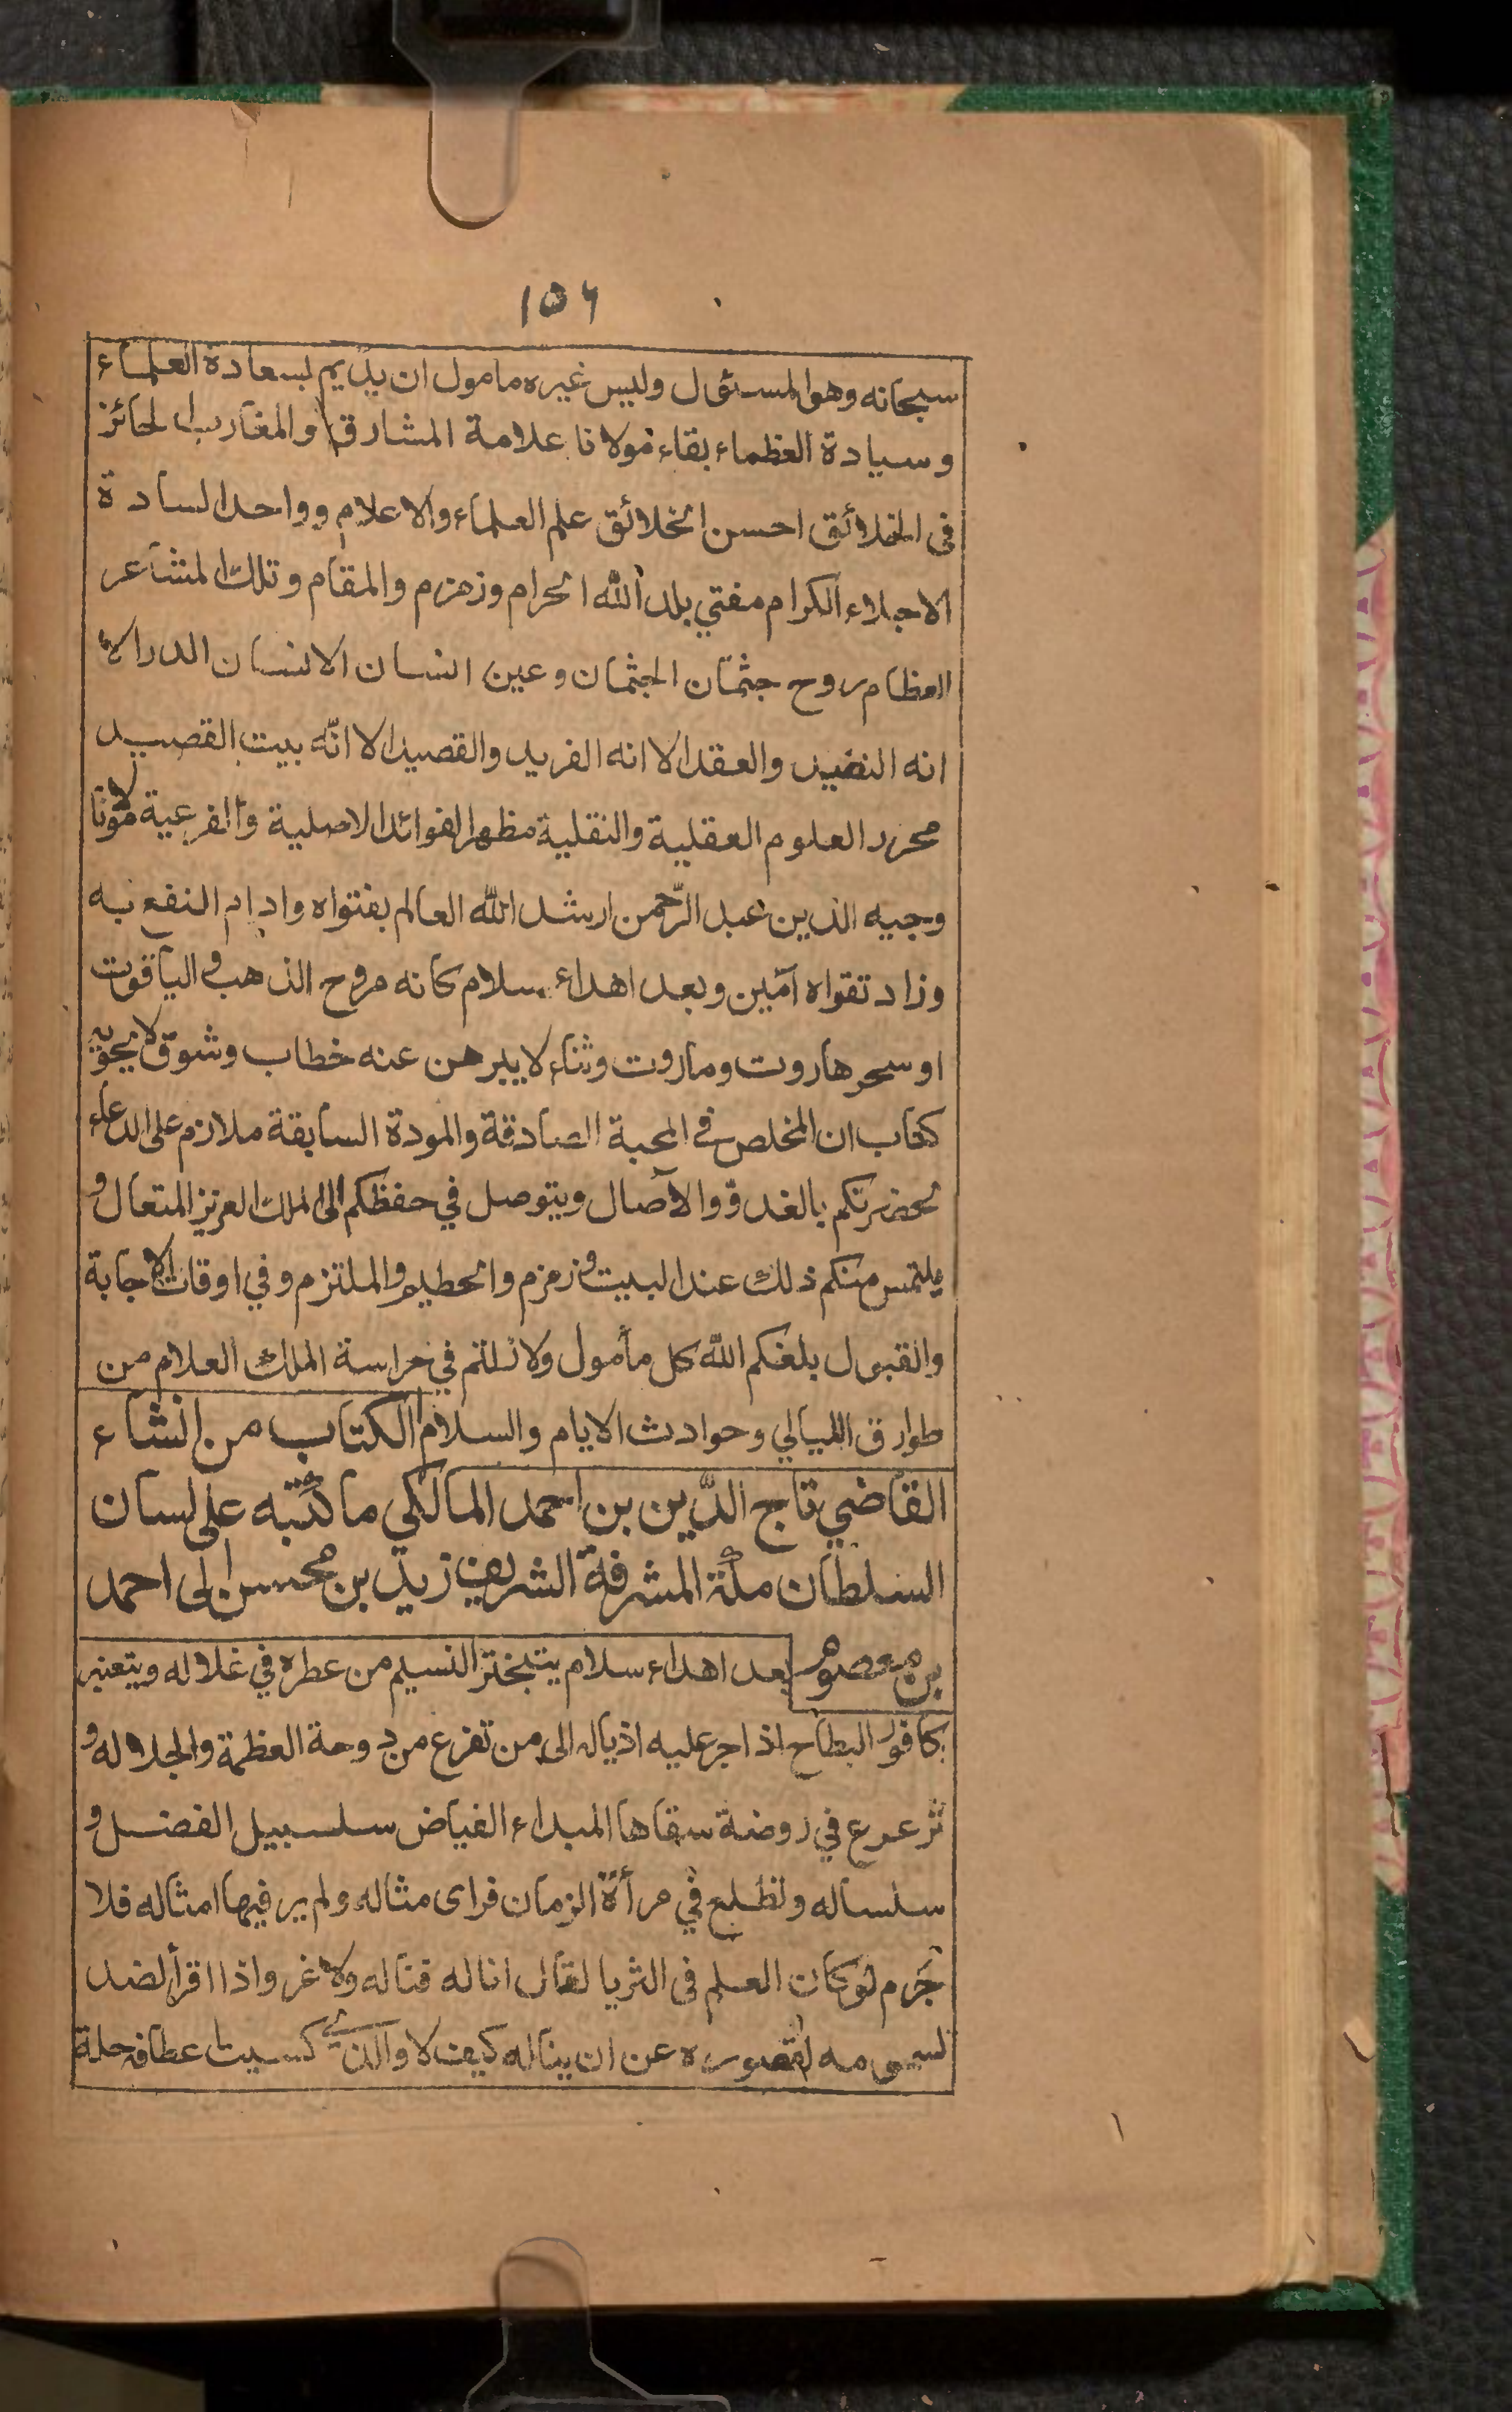 ١٥٦
سبحانه وهو المسئول وليس غيره مامول ان يديم لسعادة العلماء
وسيادة العظماء بقاء مولانا علامة المشارق والمغارب الحائز
فى الخلائق احسن الخلائق علم العلماء والاعلام وواحد السادة
الاجلاء الكرام مفتي بلد الله الحرام وزمزم والمقام وتلك المشاعر
العظام روح جثمان الجثمان وعين انسان الانسان الدر الا
انه النضيد والعقد الا انه الفريد والقصيد الا انّه بيت القصيد
محرر العلوم العقلية والنقلية مظهر الفوائد الاصلية والفرعية مولانا
وجيه الدين عبد الرّحمن ارشد الله العالم بفتواه وادام النفع به
وزاد تقواه آمين وبعد اهداء سلام كانه مروح الذهب والياقوت
او سحر هاروت وماروت وثناء لا يبرهن عنه خطاب وشوق لا يحويه
كتاب ان المخلص في المحبة الصادقة والمودة السابقة ملازم على الدعاء
لحضرتكم بالغدوّ والآصال ويتوصل في حفظكم الى الملك العزيز المتعال و
يلتمس منكم ذلك عند البيت وزمزم والحطيم والملتزم وفي اوقات الاجابة
والقبول بلغكم الله كل مأمول ولا زلتم في حراسة الملك العلام من
طوارق الليالي وحوادث الايام والسلام الكتاب من إنشاء
القاضي تاج الدّين بن احمد المالكي ما كتبه على لسان
السلطان مكة المشرفة الشريف زيد بن محسن إلى احمد
بن معصوم بعد اهداء سلام يتبختر النسيم من عطره في غلاله ويتعنبر
كافور البطاح اذا جر عليه اذياله الى من تفرع من دوحة العظمة والجلاله و
ترعرع في روضة سقاها المبداء الفياض سلسبيل الفضل و
سلساله وتطلع في مرأة الزمان فراى مثاله ولم ير فيها امثاله فلا
جرم لو كان العلم فى الثريا لقال انا له فناله ولا غرو اذا اقر الضد
لسمو مه لقصوره عن ان يناله كيف لا والذي كسيت اعطافه حلة